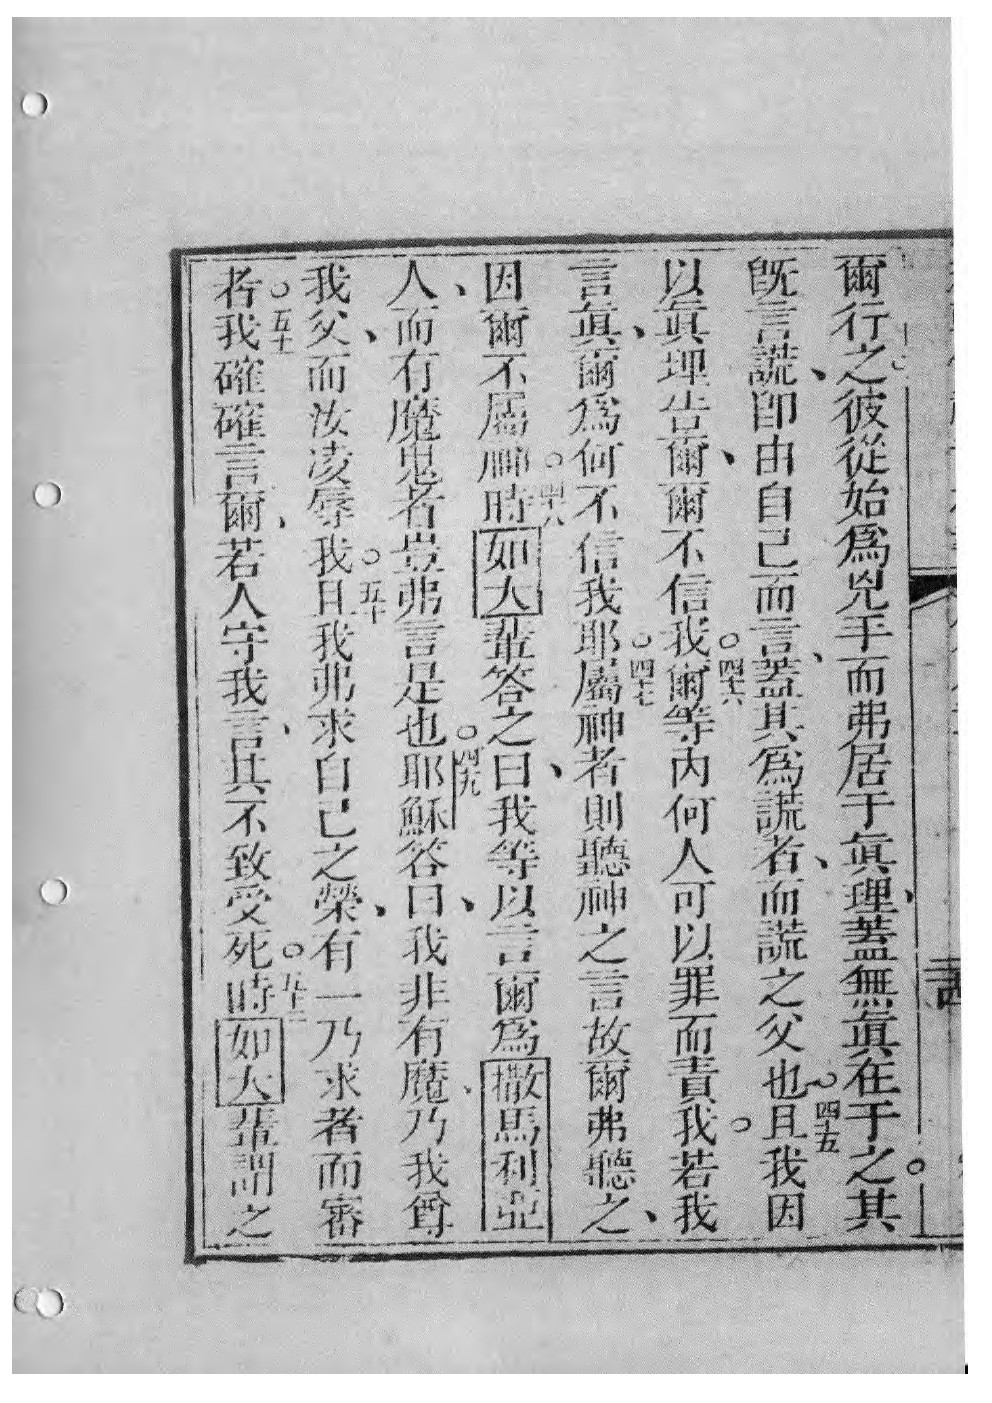 爾行之彼從始爲兇手而弗居于眞理蓋無眞在于之其
旣言謊卽由自己而言蓋其爲謊者而謊之父也四十五且我因
以眞理告爾爾不信我四十六爾等內何人可以罪而責我若我
言眞爾爲何不信我耶四十七屬神者則聽神之言故爾弗聽之
因爾不屬神四十八時如大輩答之曰我等以言爾爲撒馬利亞
人而有魔鬼者豈弗言是也四十九耶穌答曰我非有魔乃我尊
我父而汝凌辱我五十且我弗求自己之榮有一乃求者而審
者五十一我確確言爾若人守我言其不致受死五十二時如大輩謂之